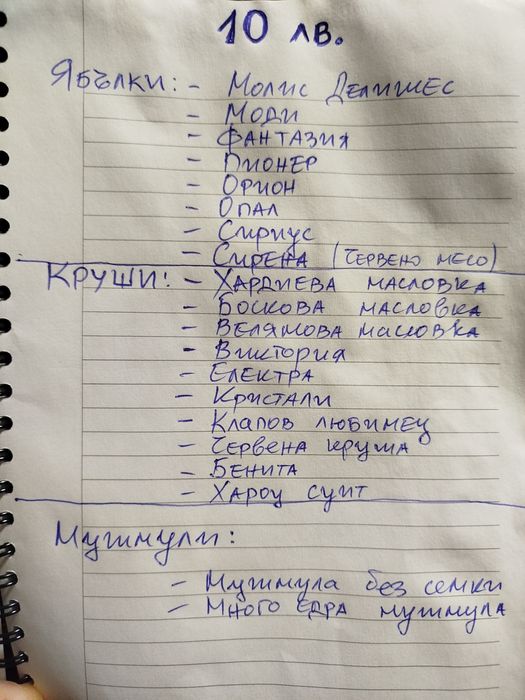 10 лв.
Ябълки: - Молис Делишес
- Моди
- Фантазия
- Пионер
- Орион
- Опал
- Сириус
- Сирена (червено месо)
Круши: - Хардиева масловка
- Боскова масловка
- Велямова масловка
- Виктория
- Електра
- Кристали
- Клапов любимец
- Червена круша
- Бенита
- Хароу суит
Мушмули:
- Мушмула без семки
- Много едра мушмула